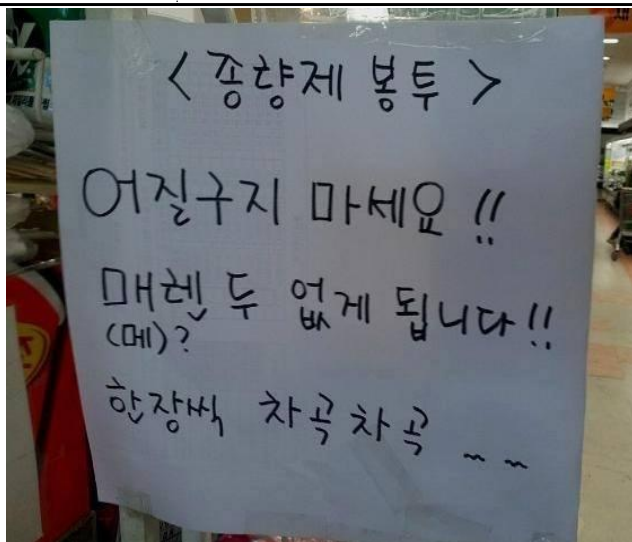 < 종량제 봉투 >
어질구지 마세요 !!
매렌두 없게 됩니다!!
(메)?
한장씩 차곡차곡 ~~